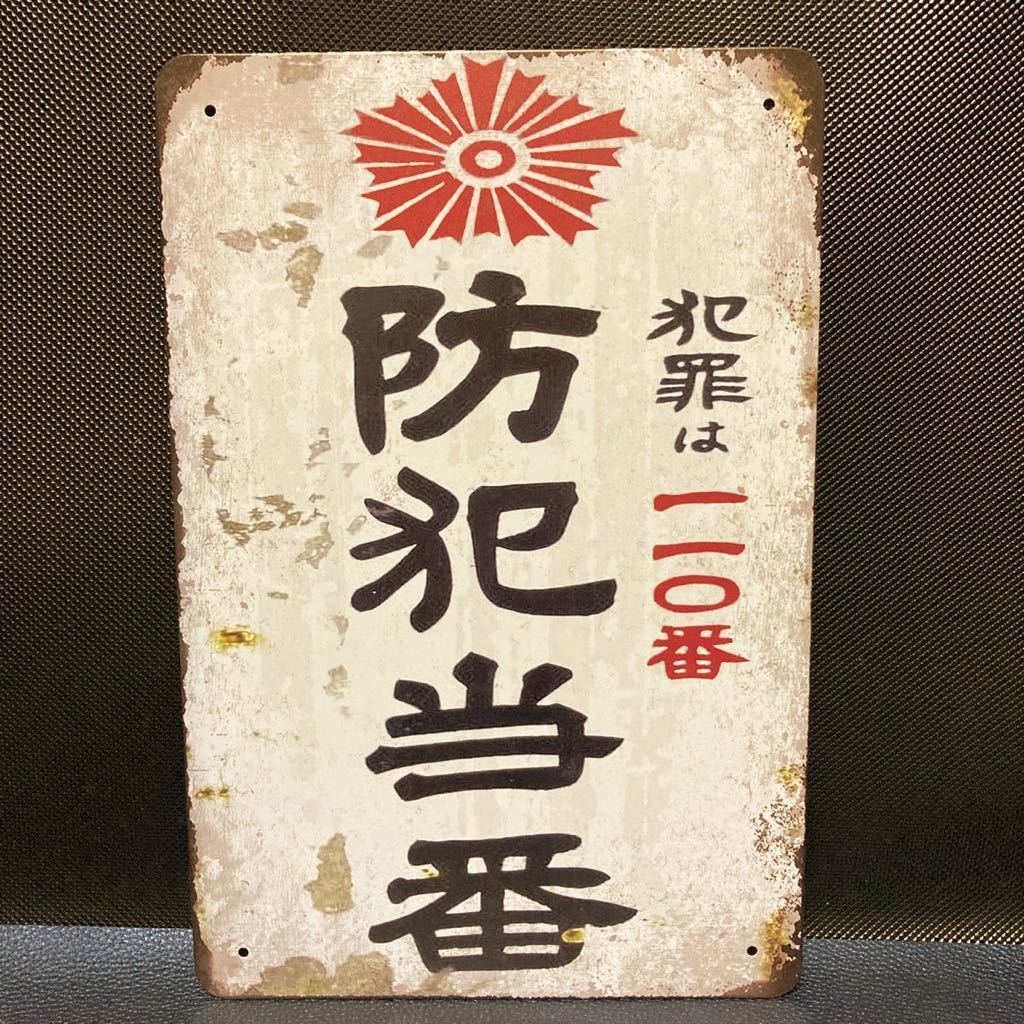 犯罪は一一〇番
防犯当番